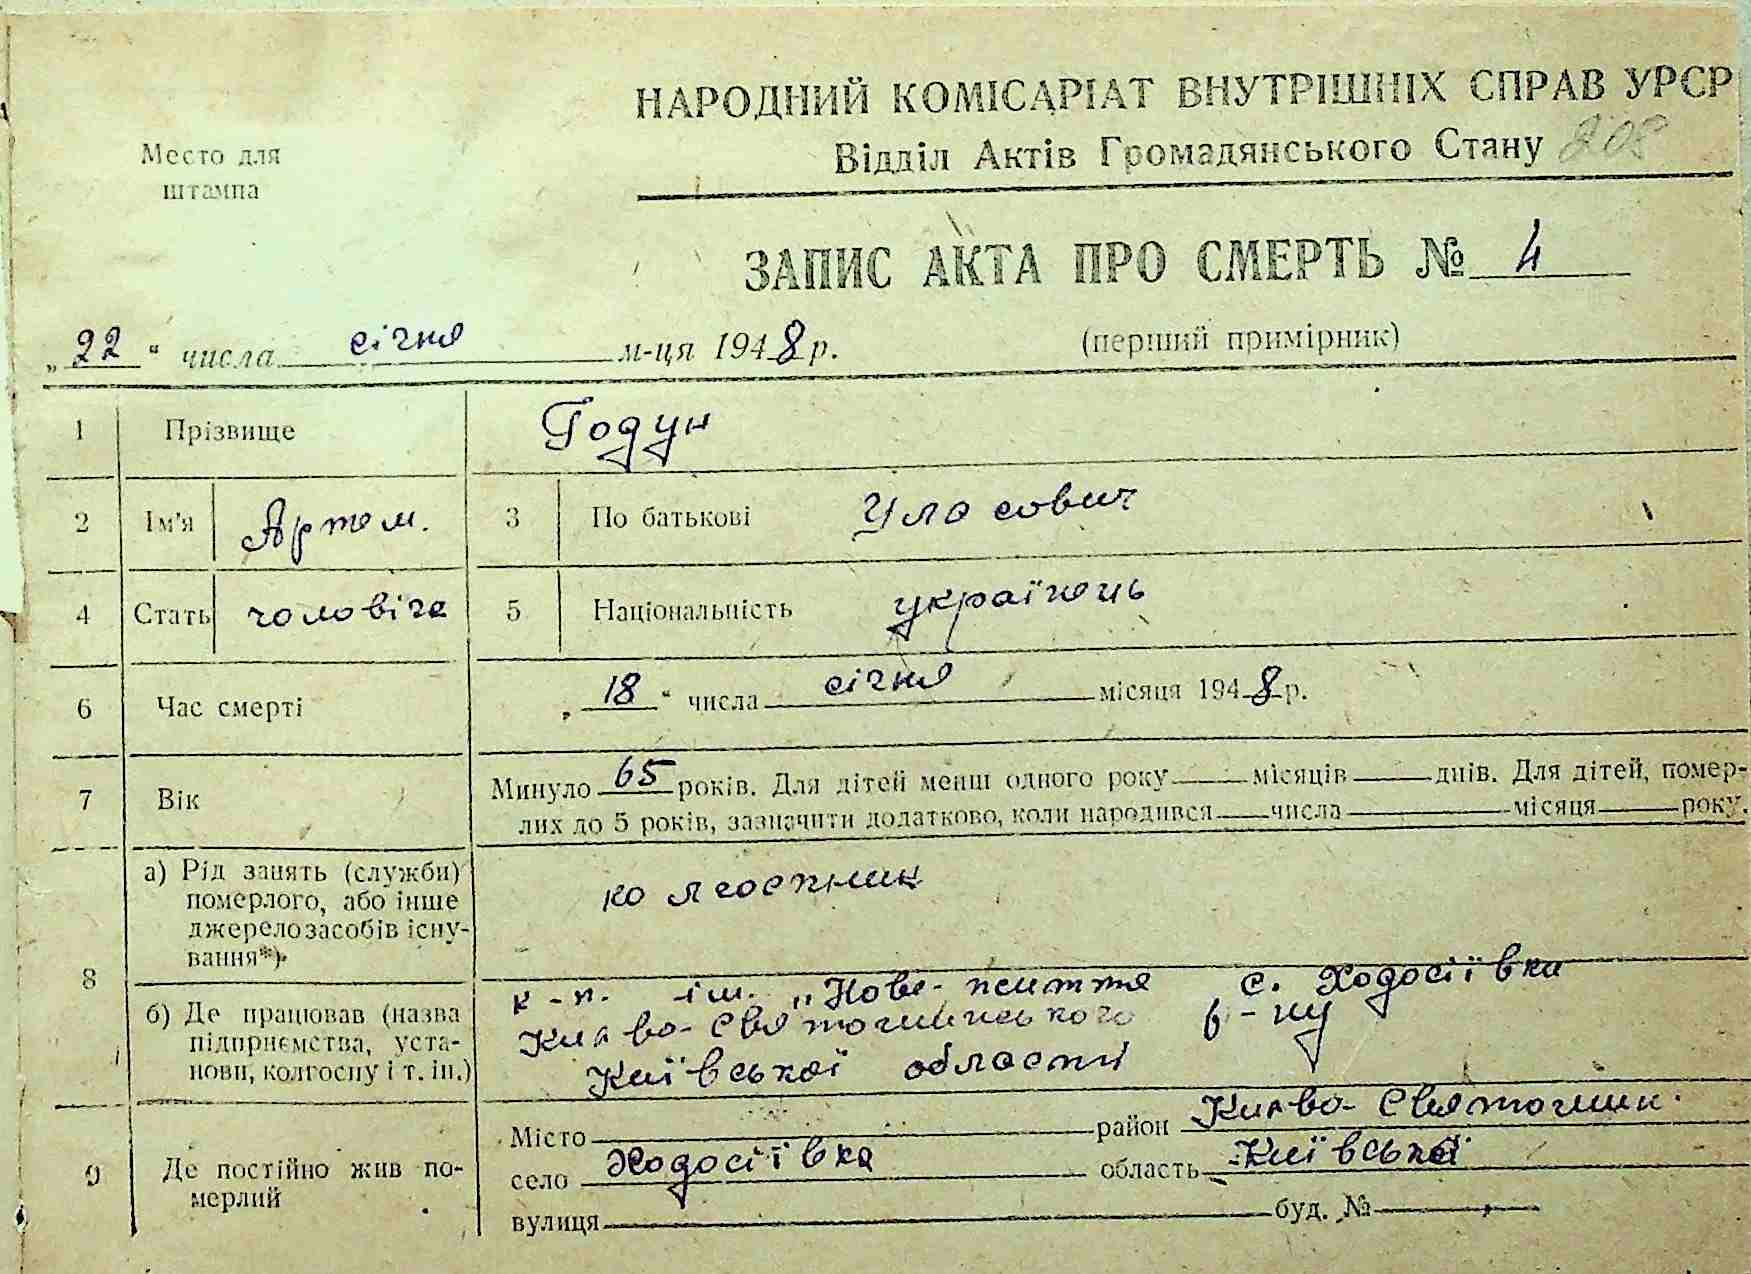 НАРОДНИЙ КОМІСАРІАТ ВНУТРІШНІХ СПРАВ УРСР
Відділ Актів Громадянського Стану 208
Место для
штампа
ЗАПИС АКТА ПРО СМЕРТЬ № 4
„22“ числа січня м-ця 1948 р.
(перший примірник)
1 Прізвище Годун
2 Ім'я Артем. 3 По батькові Уласович
4 Стать чоловіча 5 Національність українець
6 Час смерті „18“ числа січня місяця 1948 р.
7 Вік Минуло 65 років. Для дітей менш одного року місяців днів. Для дітей, помер-
лих до 5 років, зазначити додатково, коли народився числа місяця року.
8 а) Рід занять (служби)
померлого, або інше
джерело засобів існу-
вання*)
колгоспник
б) Де працював (назва
підприємства, уста-
нови, колгоспу і т. ін.)
к-п. ім. „Нове-життя с. Ходосіївка
Києво-Святошинського р-ну
Київської області
9 Де постійно жив по-
мерлий
Місто район Києво-Святошин.
село Ходосіївка область Київської
вулиця буд. №